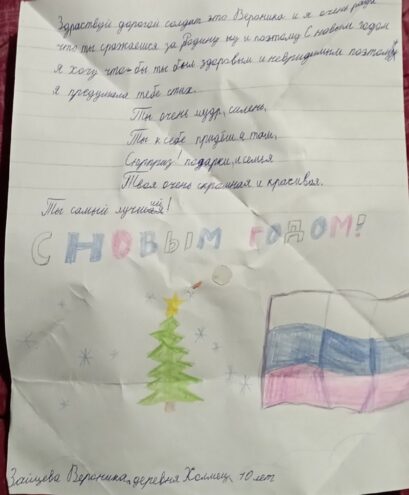 Здраствуй дорогой солдат это Вероника и я очень рада
что ты сражаешся за Родину ну и поэтому С новым годом
я хочу что-бы ты был здоровым и невридимым поэтому
я предумала тебе стих.
Ты очень мудр, силень,
Ты к себе придёш а там,
Сюрприз! подарки, и семья
Твоя очень скромная и красивая.
Ты самый лучший!
С НОВЫМ ГОДОМ!
Зайцева Вероника, деревня Холмец 10 лет